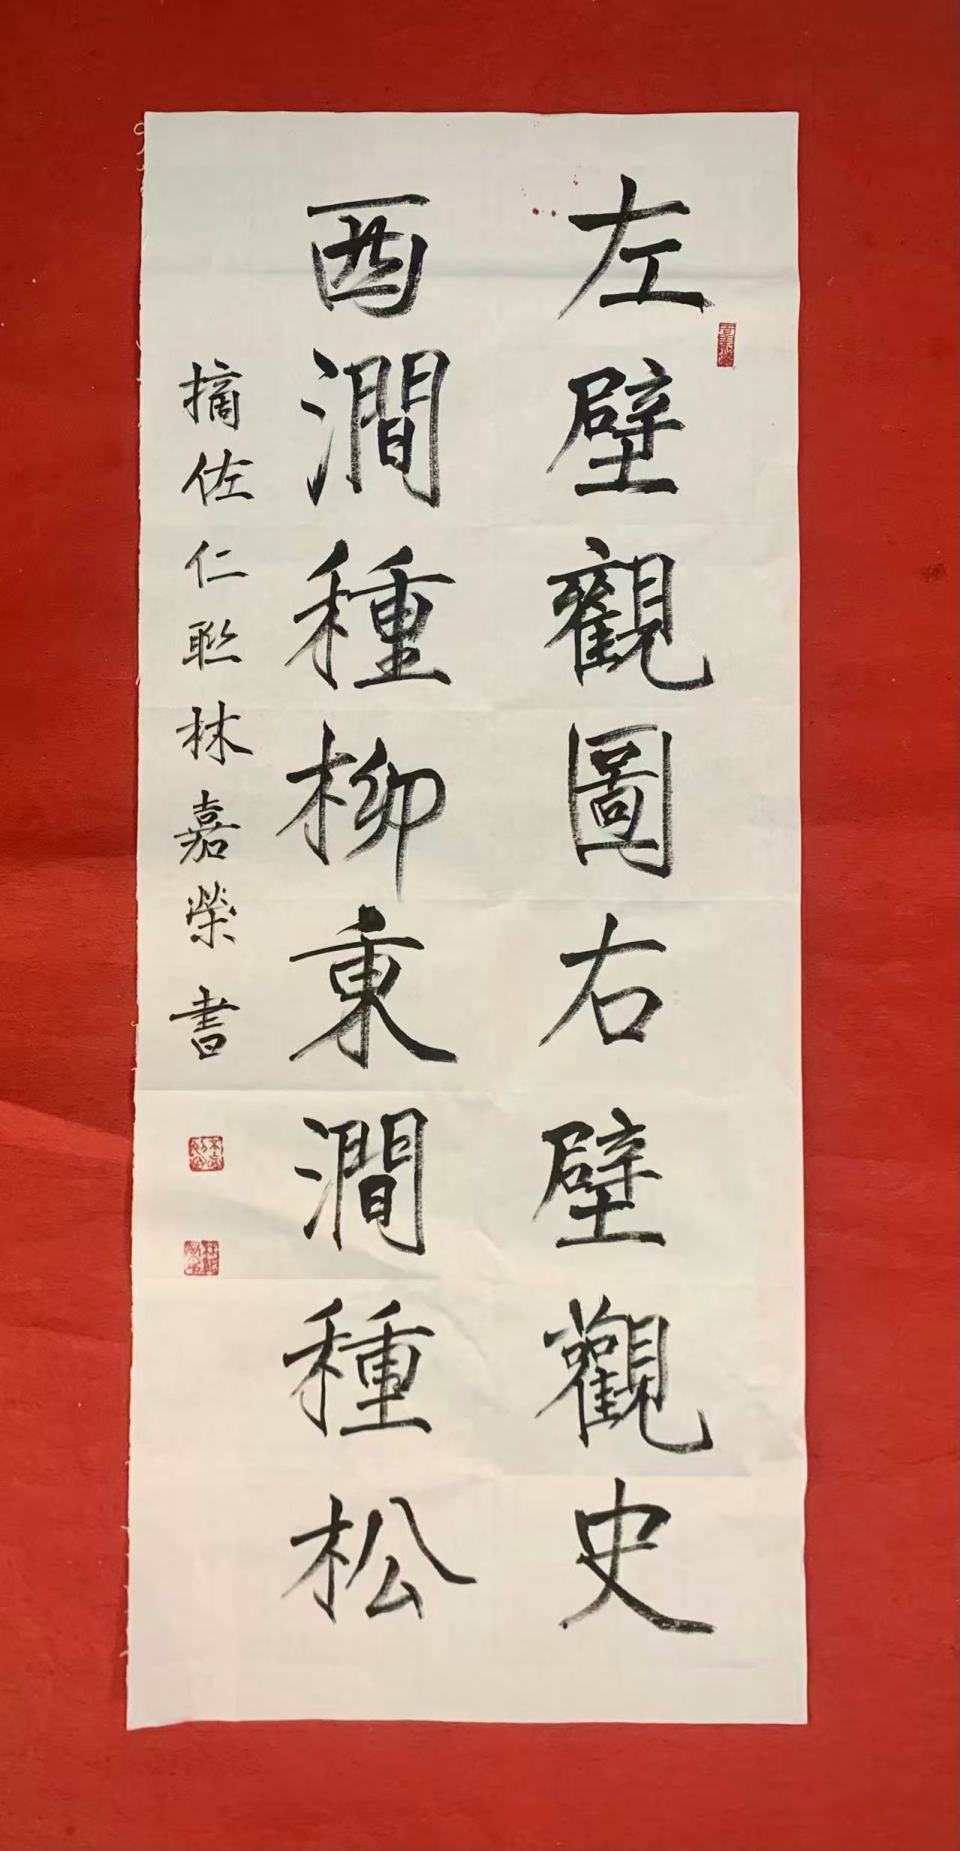 左壁觀圖右壁觀史
西澗種柳東澗種松
摘佐仁聯林嘉榮書